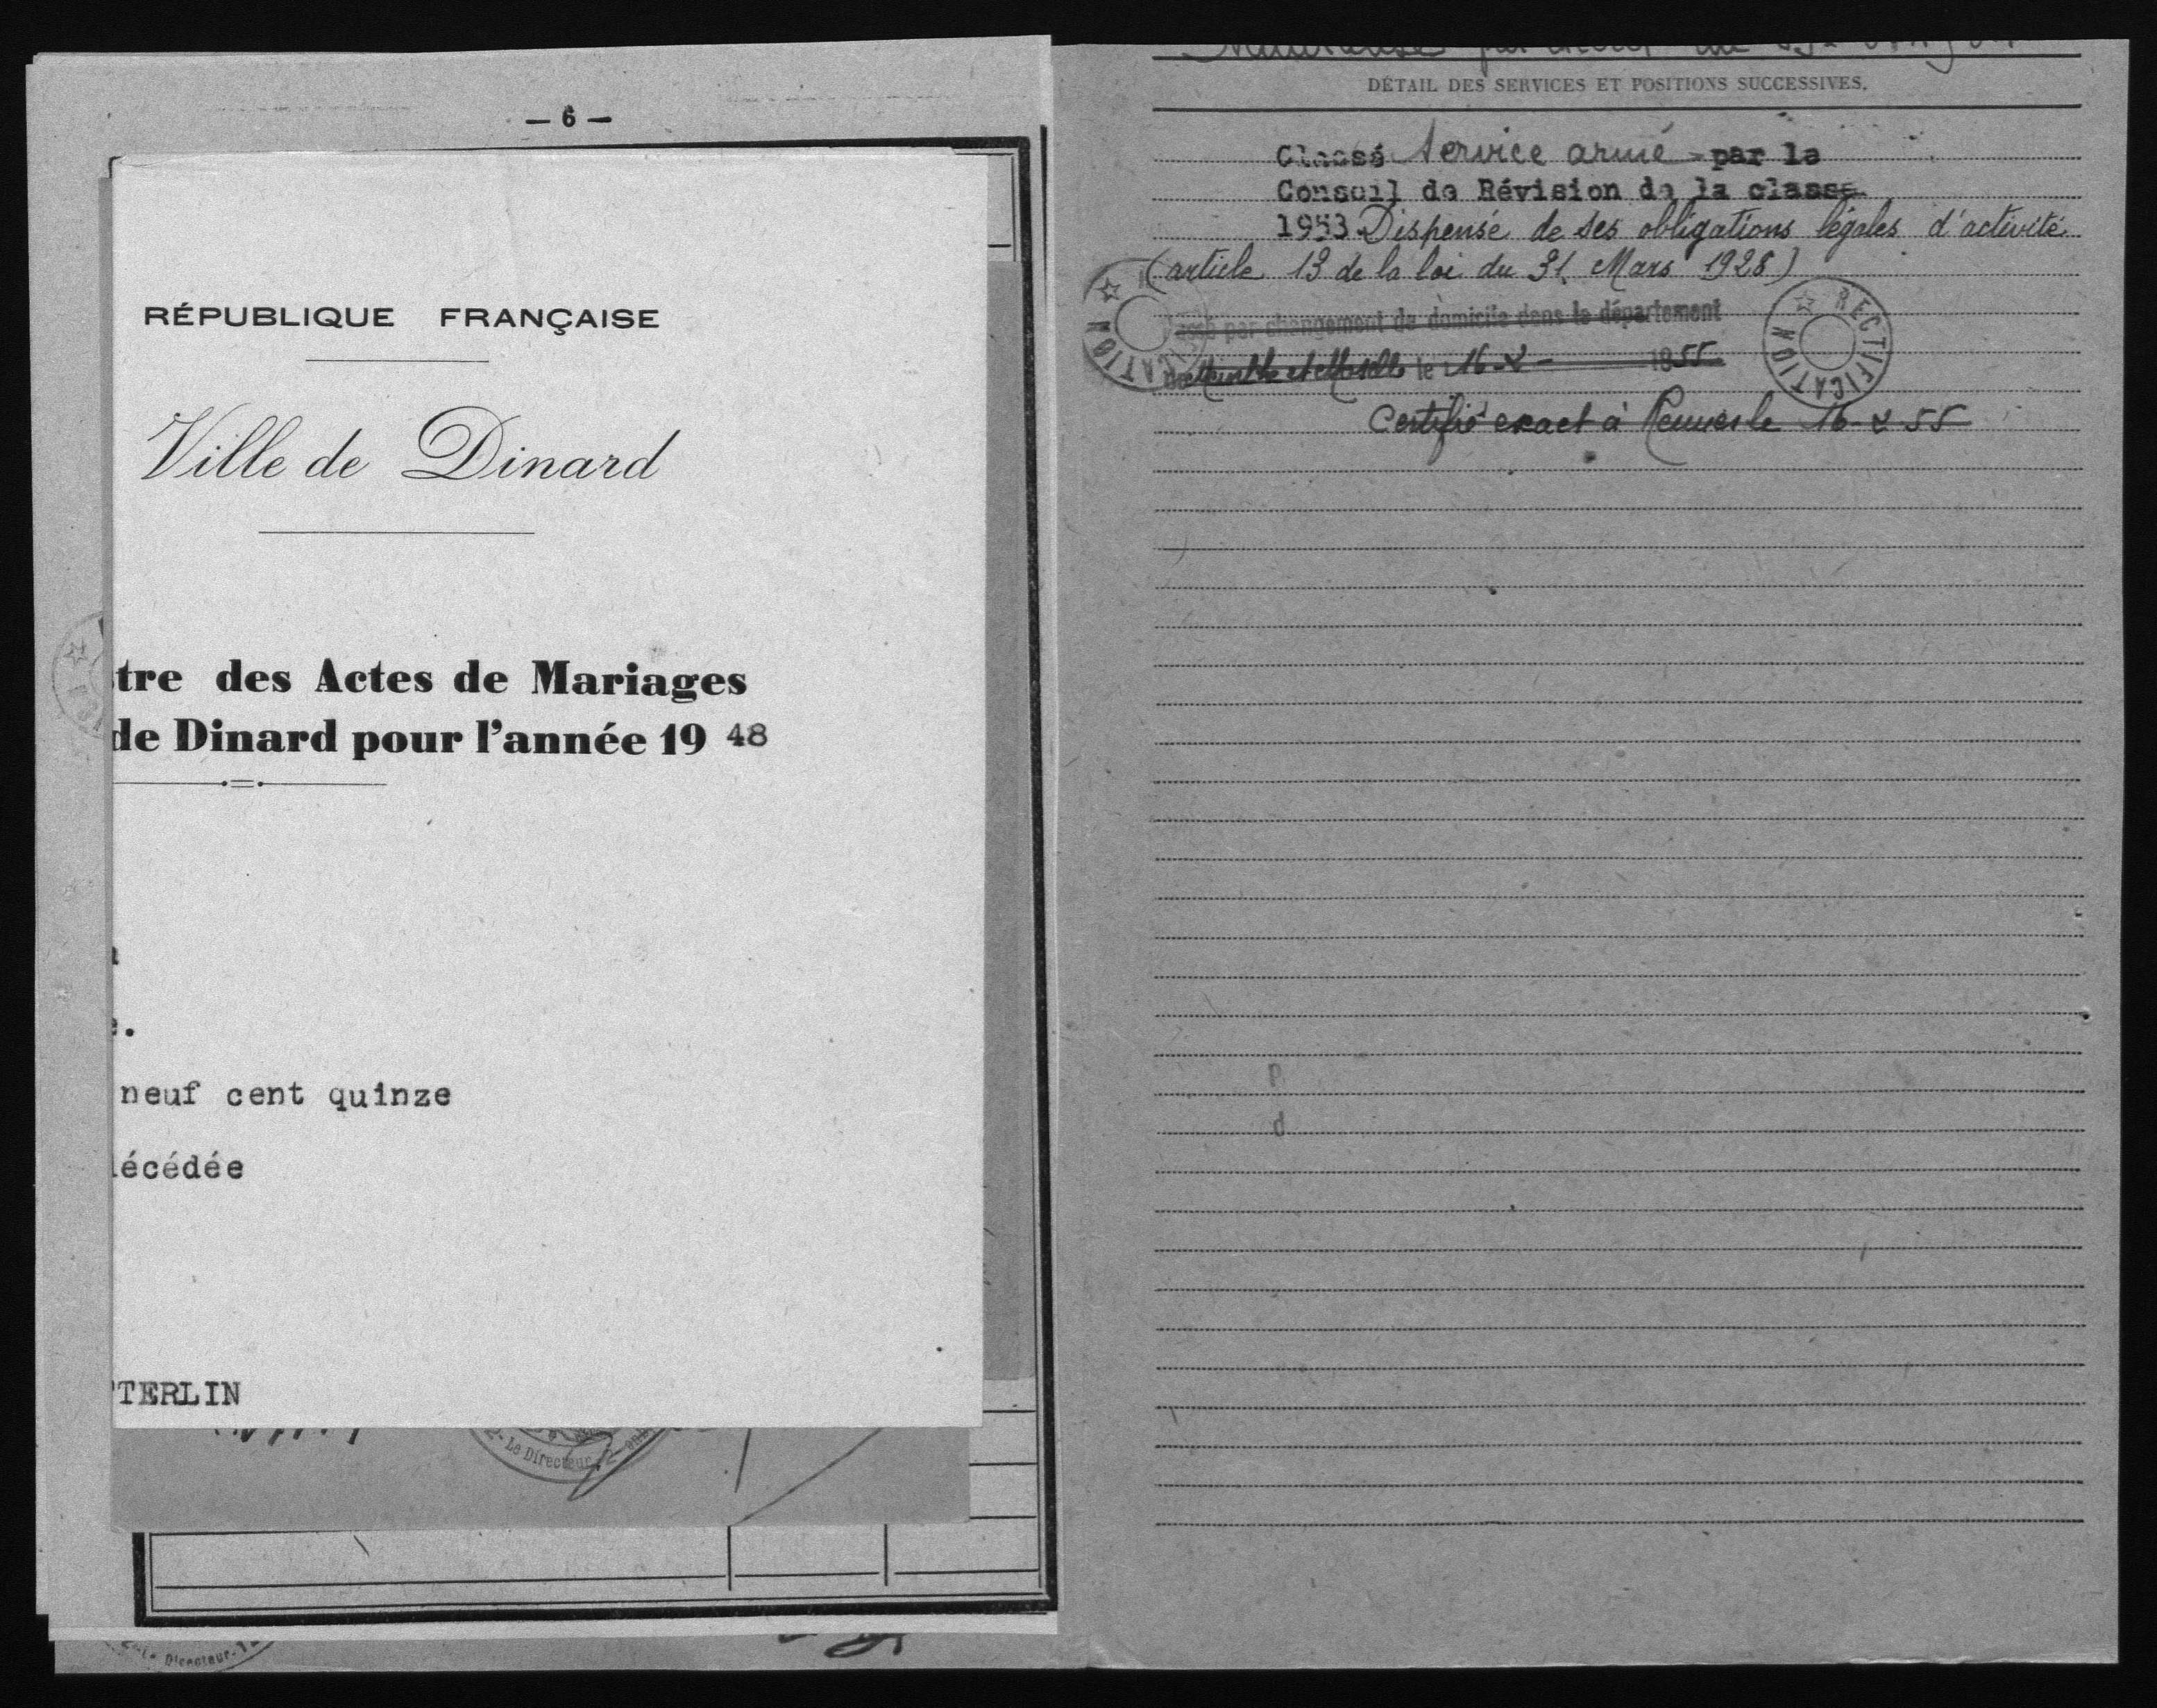 — 6 —
RÉPUBLIQUE FRANÇAISE
Ville de Dinard
tre des Actes de Mariages
de Dinard pour l'année 19 48
e.
neuf cent quinze
écédée
TERLIN
Le Directeur
Directeur
par décret du
DÉTAIL DES SERVICES ET POSITIONS SUCCESSIVES.
Classé Service armé par le
Conseil de Révision de la classe
1953 Dispensé de ses obligations légales d'activité
(article 13 de la loi du 31 Mars 1928)
par changement de domicile dans le département
Meurthe et Moselle le 16-X- 1955
RECTIFICATION
RECTIFICATION
Certifié exact à Rennes le 16-X-55
p
d